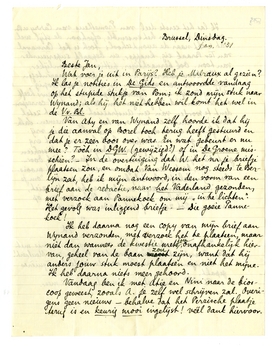 Brussel, Dinsdag.
jan. '31
Beste Jan,
Wat voer je uit in Parijs? Heb je Malraux al gezien?
Ik las je notities in De Gids en antwoordde vandaag
op het stupide stukje van Bvs; ik zond mijn stuk naar
Wijnand; als hij het niet hebben wil komt het wel in
de Vr. Bl.
Van city en van Wijnand zelf hoorde ik dat hij
je die aanval op Borel toch terug heeft gestuurd en
dat je er zeer boos over was. En wat gebeurt er nu
mee? Toch in DGW (gewijzigd?) of in de Groene mis-
schien? — In de overtuiging dat W. het nu je briefje
plaatsen zou, en omdat Jan Wessem nog steeds in Ber-
lijn zat, heb ik mijn antwoord, in den vorm van een
brief aan de redactie, naar het Vaderland gezonden,
met verzoek aan Pannekoek om mij „in te lichten".
Het gevolg was inliggend briefje — Die goeie Panne-
koek!
Ik heb daarna nog een copy van mijn brief aan
Wijnand verzonden, met verzoek het te plaatsen, maar
niet dan wanneer de kwestie werkelijk onafhankelijk hier-
van geheel van de baan zijn, want dat hij
anders jouw stuk moest plaatsen en niet het mijne.
Ik heb daarna niets meer gehoord.
Vandaag ben ik met city en Nini naar de bios-
coop geweest, zooals je je zelf wel schrijven zal. Overi-
gens geen nieuws — behalve dat het Perzische plaatje
terug is en keurig mooi ingelijst! veel dank hiervoor.